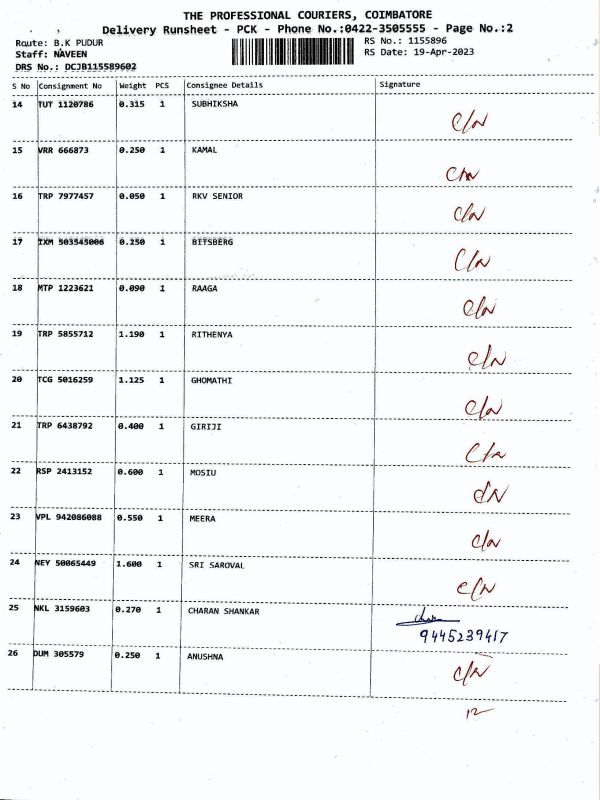 THE PROFESSIONAL COURIERS, COIMBATORE
Delivery Runsheet - PCK - Phone No.:0422-3505555 - Page No.:2
Route: B.K PUDUR
RS No.: 1155896
Staff: NAVEEN
RS Date: 19-Apr-2023
DRS No.: DCJB115589602
S No Consignment No Weight PCS Consignee Details Signature
14 TUT 1120786 0.315 1 SUBHIKSHA
C/N
15 VRR 666873 0.250 1 KAMAL
C/N
16 TRP 7977457 0.050 1 RKV SENIOR
C/N
17 TXM 503545006 0.250 1 BITSBERG
C/N
18 MTP 1223621 0.090 1 RAAGA
C/N
19 TRP 5855712 1.190 1 RITHENYA
C/N
20 TCG 5016259 1.125 1 GHOMATHI
C/N
21 TRP 6438792 0.400 1 GIRIJI
C/N
22 RSP 2413152 0.600 1 MOSIU
C/N
23 VPL 942086088 0.550 1 MEERA
C/N
24 NEY 50065449 1.600 1 SRI SAROVAL
C/N
25 NKL 3159603 0.270 1 CHARAN SHANKAR
9445239417
26 DUM 305579 0.250 1 ANUSHNA
C/N
12